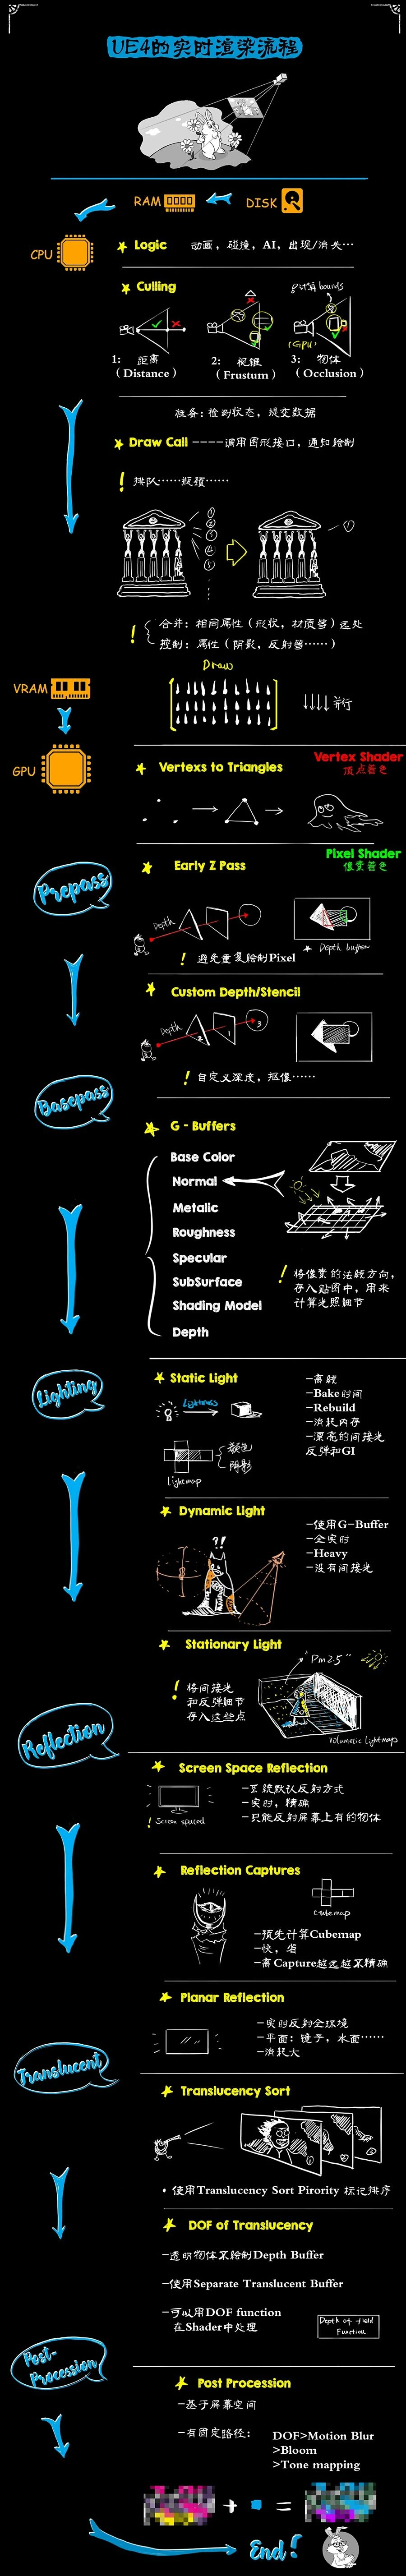 UE4的实时渲染流程
RAM
DISK
CPU
Logic
动画，碰撞，AI，出现/消失…
Culling
计算bounds
(GPU)
1： 距离
（Distance）
2： 视锥
（Frustum）
3： 物体
（Occlusion）
准备：检测状态，提交数据
Draw Call ----调用图形接口，通知绘制
! 排队……瓶颈……
合并：相同属性（形状，材质等）远处
控制：属性（阴影，反射等……）
Draw
VRAM
并行
GPU
Vertex Shader
顶点着色
Vertexs to Triangles
Pixel Shader
像素着色
Prepass
Early Z Pass
Depth
Depth buffer
! 避免重复绘制Pixel
Custom Depth/Stencil
Depth
2
1
3
! 自定义深度，抠像……
Basepass
G - Buffers
Base Color
Normal
Metalic
Roughness
Specular
SubSurface
Shading Model
Depth
! 将像素的法线方向，
存入贴图中，用来
计算光照细节
Lighting
Static Light
Lightmass
Lightmap
颜色
阴影
-离线
-Bake时间
-Rebuild
-消耗内存
-漂亮的间接光
反弹和GI
Dynamic Light
!!
-使用G-Buffer
-全实时
-Heavy
-没有间接光
Stationary Light
"Pm2.5"
! 将间接光
和反弹细节
存入这些点
Volumetic Lightmap
Reflection
Screen Space Reflection
-系统默认反射方式
-实时，精确
-只能反射屏幕上有的物体
! Screen spaced
Reflection Captures
Cubemap
-预先计算Cubemap
-快，省
-离Capture越远越不精确
Planar Reflection
-实时反射全环境
-平面：镜子，水面……
-消耗大
Translucent
Translucency Sort
• 使用Translucency Sort Pirority 标记排序
DOF of Translucency
-透明物体不绘制Depth Buffer
-使用Separate Translucent Buffer
-可以用DOF function
在Shader中处理
Depth of field
Function
Post-
Procession
Post Procession
-基于屏幕空间
-有固定路径：
DOF>Motion Blur
>Bloom
>Tone mapping
+ =
End!